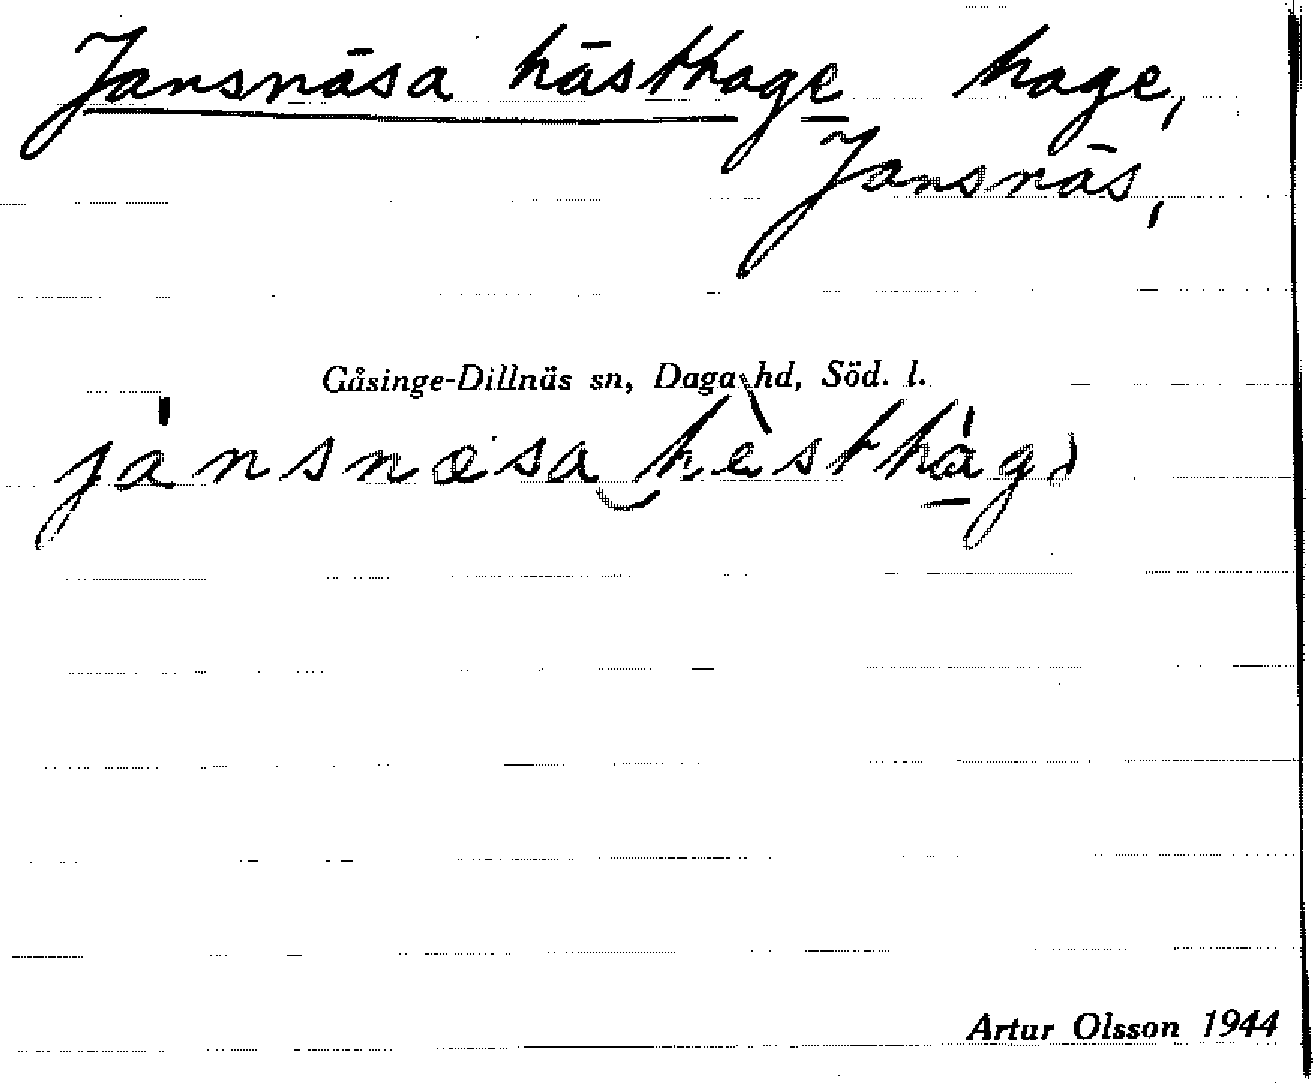 Jansnäsa hästhage hage,
Jansnäs,
Gåsinge-Dillnäs sn, Daga hd, Söd. l.
jánsnæsa hèsthág
Artur Olsson 1944